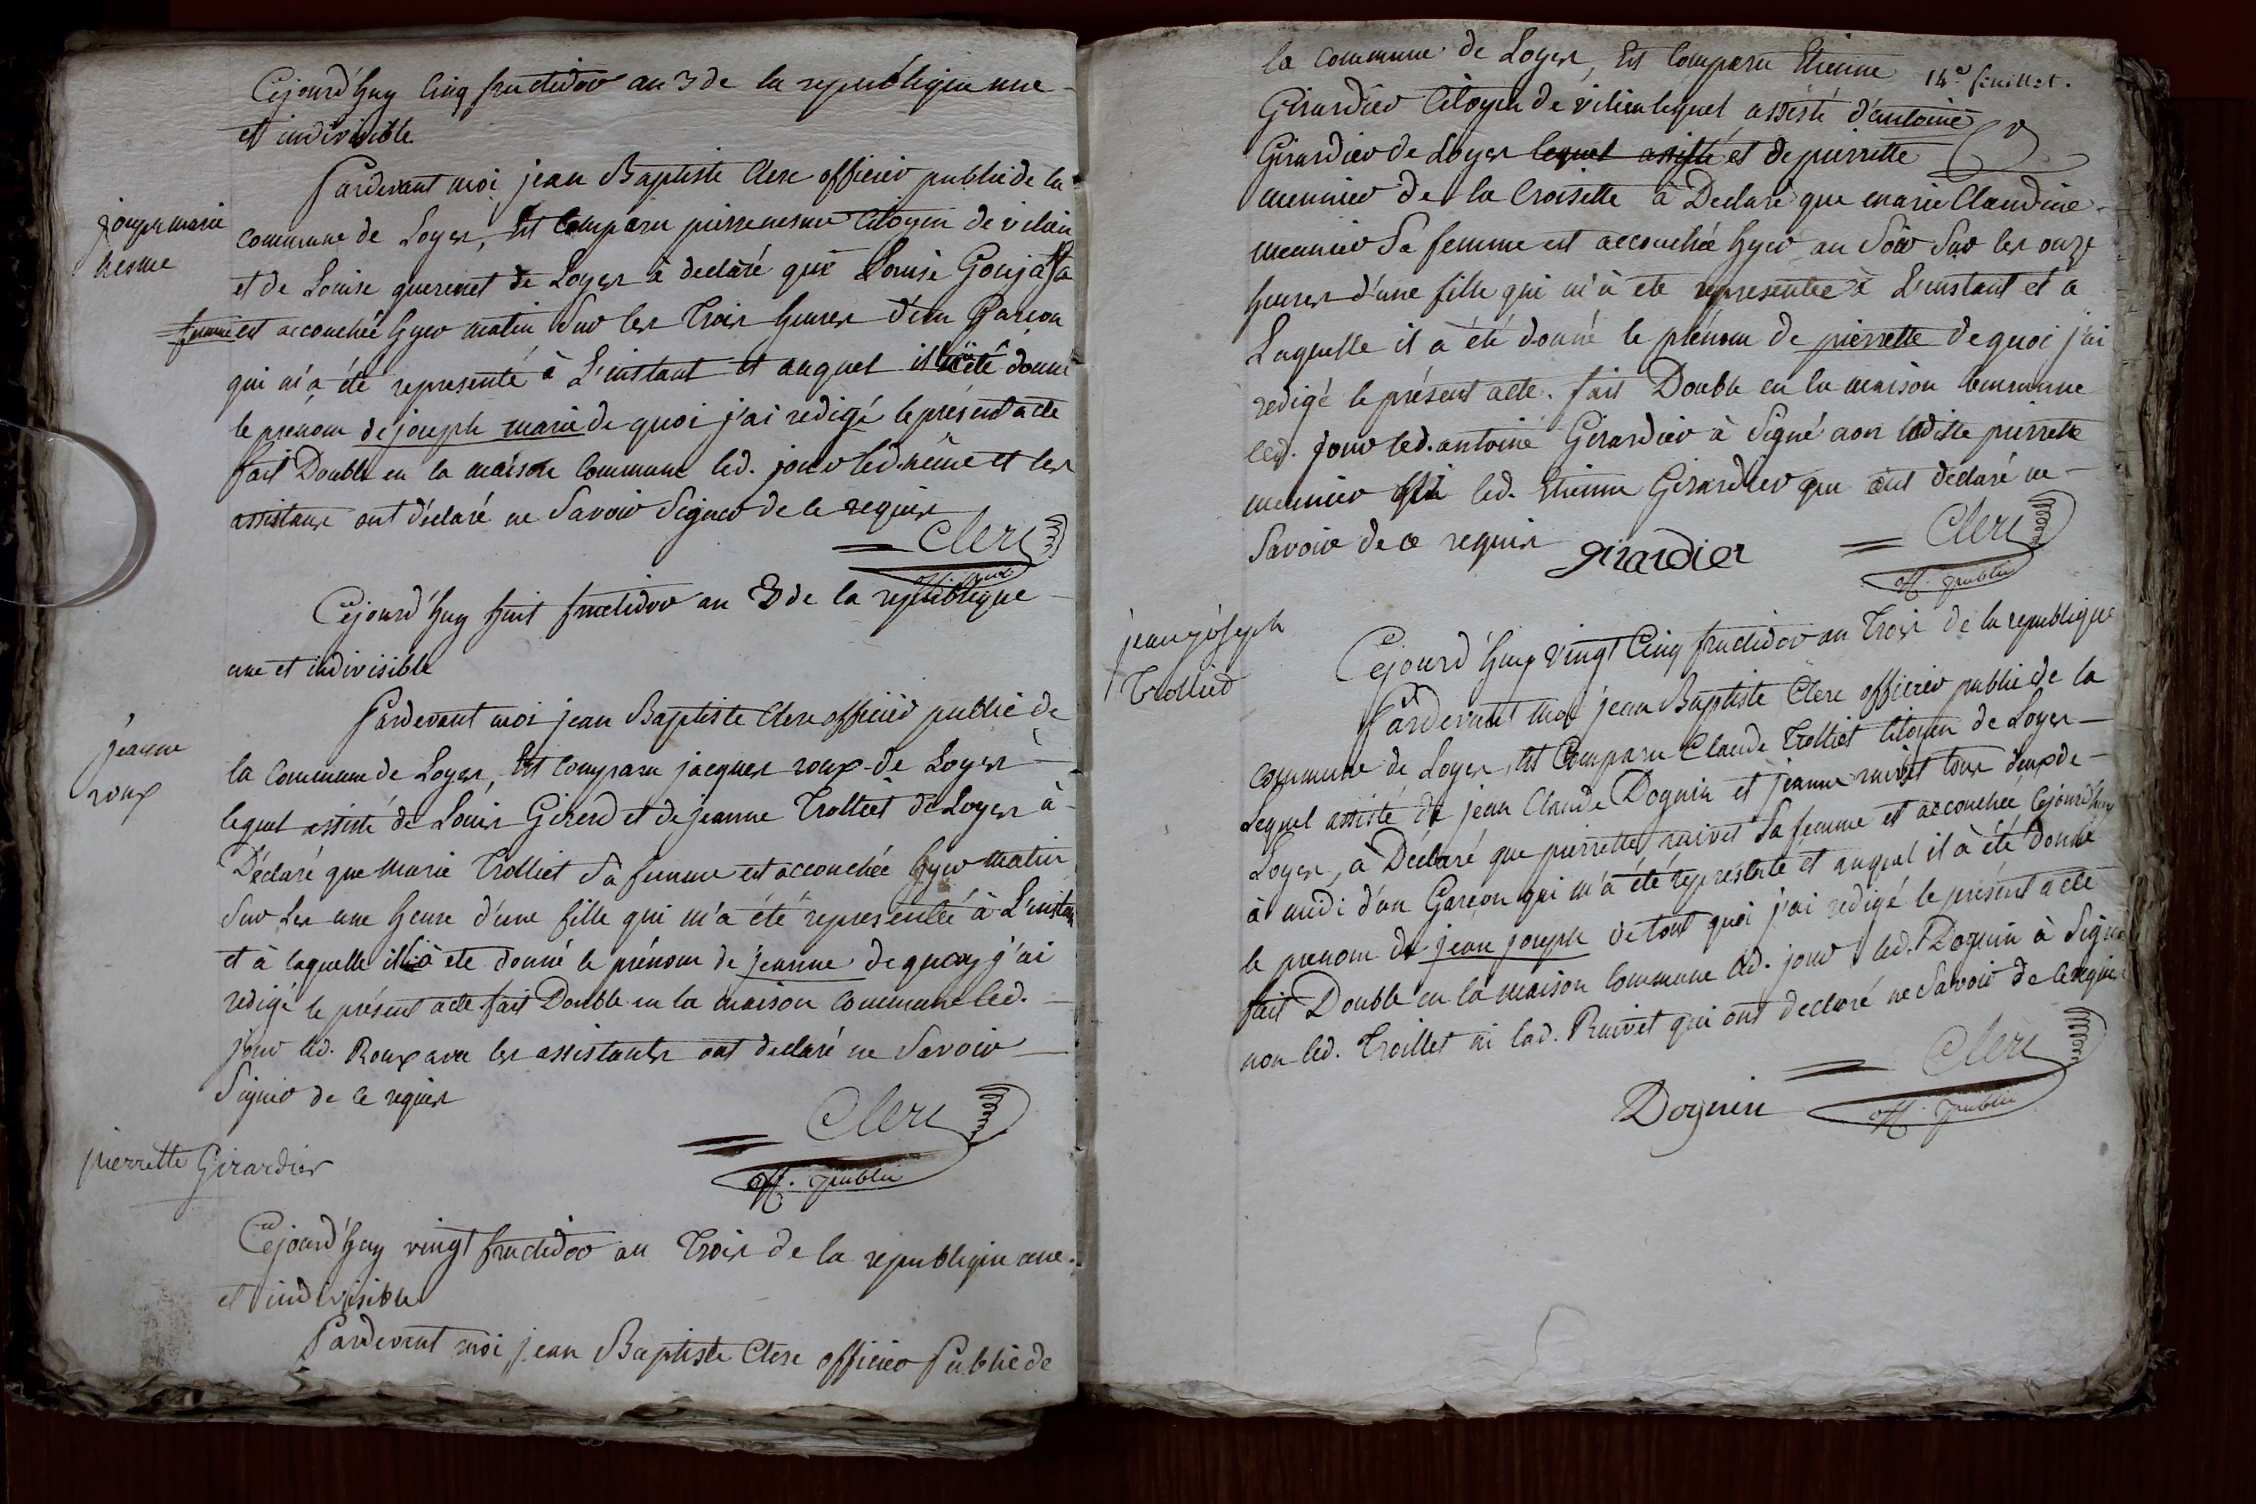 Cejourd'huy Cinq fructidor an 3 de la republique une
et indivisible
Pardevant moi jean Baptiste Clerc officier public de la
joseph marie
nesme
commune de Loyes, Est Comparu pierre nesme Citoyen de vilieu
et de Louise querenet de Loyes à declaré que Louise Gouja Sa
femme est accouchée hyer matin Sur les trois heures d'un Garcon
qui m'a été representé à L'instant et auquel il a été donné
le prenom de joseph marie de quoi j'ai redigé le présent acte
fait Double en la maison Commune led. jour led. nesme et les
assistans ont déclaré ne Savoir Signer de ce requis
Clerc
off. public
Cejourd'huy huit fructidor an 3 de la republique
une et indivisible
Pardevant moi jean Baptiste Clerc officier public de
jeanne
roux
la Commune de Loyes, Est comparu jacques roux de Loyes
lequel assisté de Louis Girerd et de jeanne Trolliet de Loyes à
Déclaré que marie Trolliet Sa femme est accouchée hyer matin
Sur Les une heure d'une fille qui m'a été representée à L'instant
et à laquelle il a été donné le prénom de jeanne de quoy j'ai
redigé le présent acte fait Double en la maison commune led.
jour led. Roux avec les assistants ont declaré ne Savoir
Signer de ce requis
Clerc
off. public
pierrette Girardier
Cejourd'huy vingt fructidor an Trois de la republique une
et indivisible
Pardevant moi jean Baptiste Clerc officier Public de
14e feuillet.
la Commune de Loyes, Est Comparu Etienne
Girardier Citoyen de vilieu lequel assisté d'antoine
Girardier de Loyes lequel assisté et de pierrette
meunier de la Croisette à Declaré que marie Claudine
meunier Sa femme est accouchée hyer au Soir Sur les onze
heures d'une fille qui m'à été representée à L'instant et à
Laquelle il à été donné le prénom de pierrette de quoi j'ai
redigé le présent acte. fait Double en la maison Commune
led. jour led. antoine Girardier à Signé non ladite pierrette
meunier led. Etienne Girardier qui ont déclaré ne
Savoir de ce requis
girardier
Clerc
off. public
jean joseph
Trollied
Cejourd'huy vingt Cinq fructidor an Trois de la republique
Pardevant moi jean Baptiste Clerc officier public de la
commune de Loyes, Est Comparu Claude Trolliet Citoyen de Loyes
Lequel assisté de jean Claude Dognin et jeanne ruivet tous deux de
Loyes, à Déclaré que pierrette ruivet Sa femme est accouchée Cejourd'huy
à midi d'un Garçon qui m'à été représenté et auquel il à été donné
le prenom de jean joseph de tout quoi j'ai redigé le présent acte
fait Double en la maison Commune led. jour led. Dognin à Signé
non led. Troillet ni lad. Ruivet qui ont declaré ne Savoir de ce requis
Clerc
off. public
Dognin